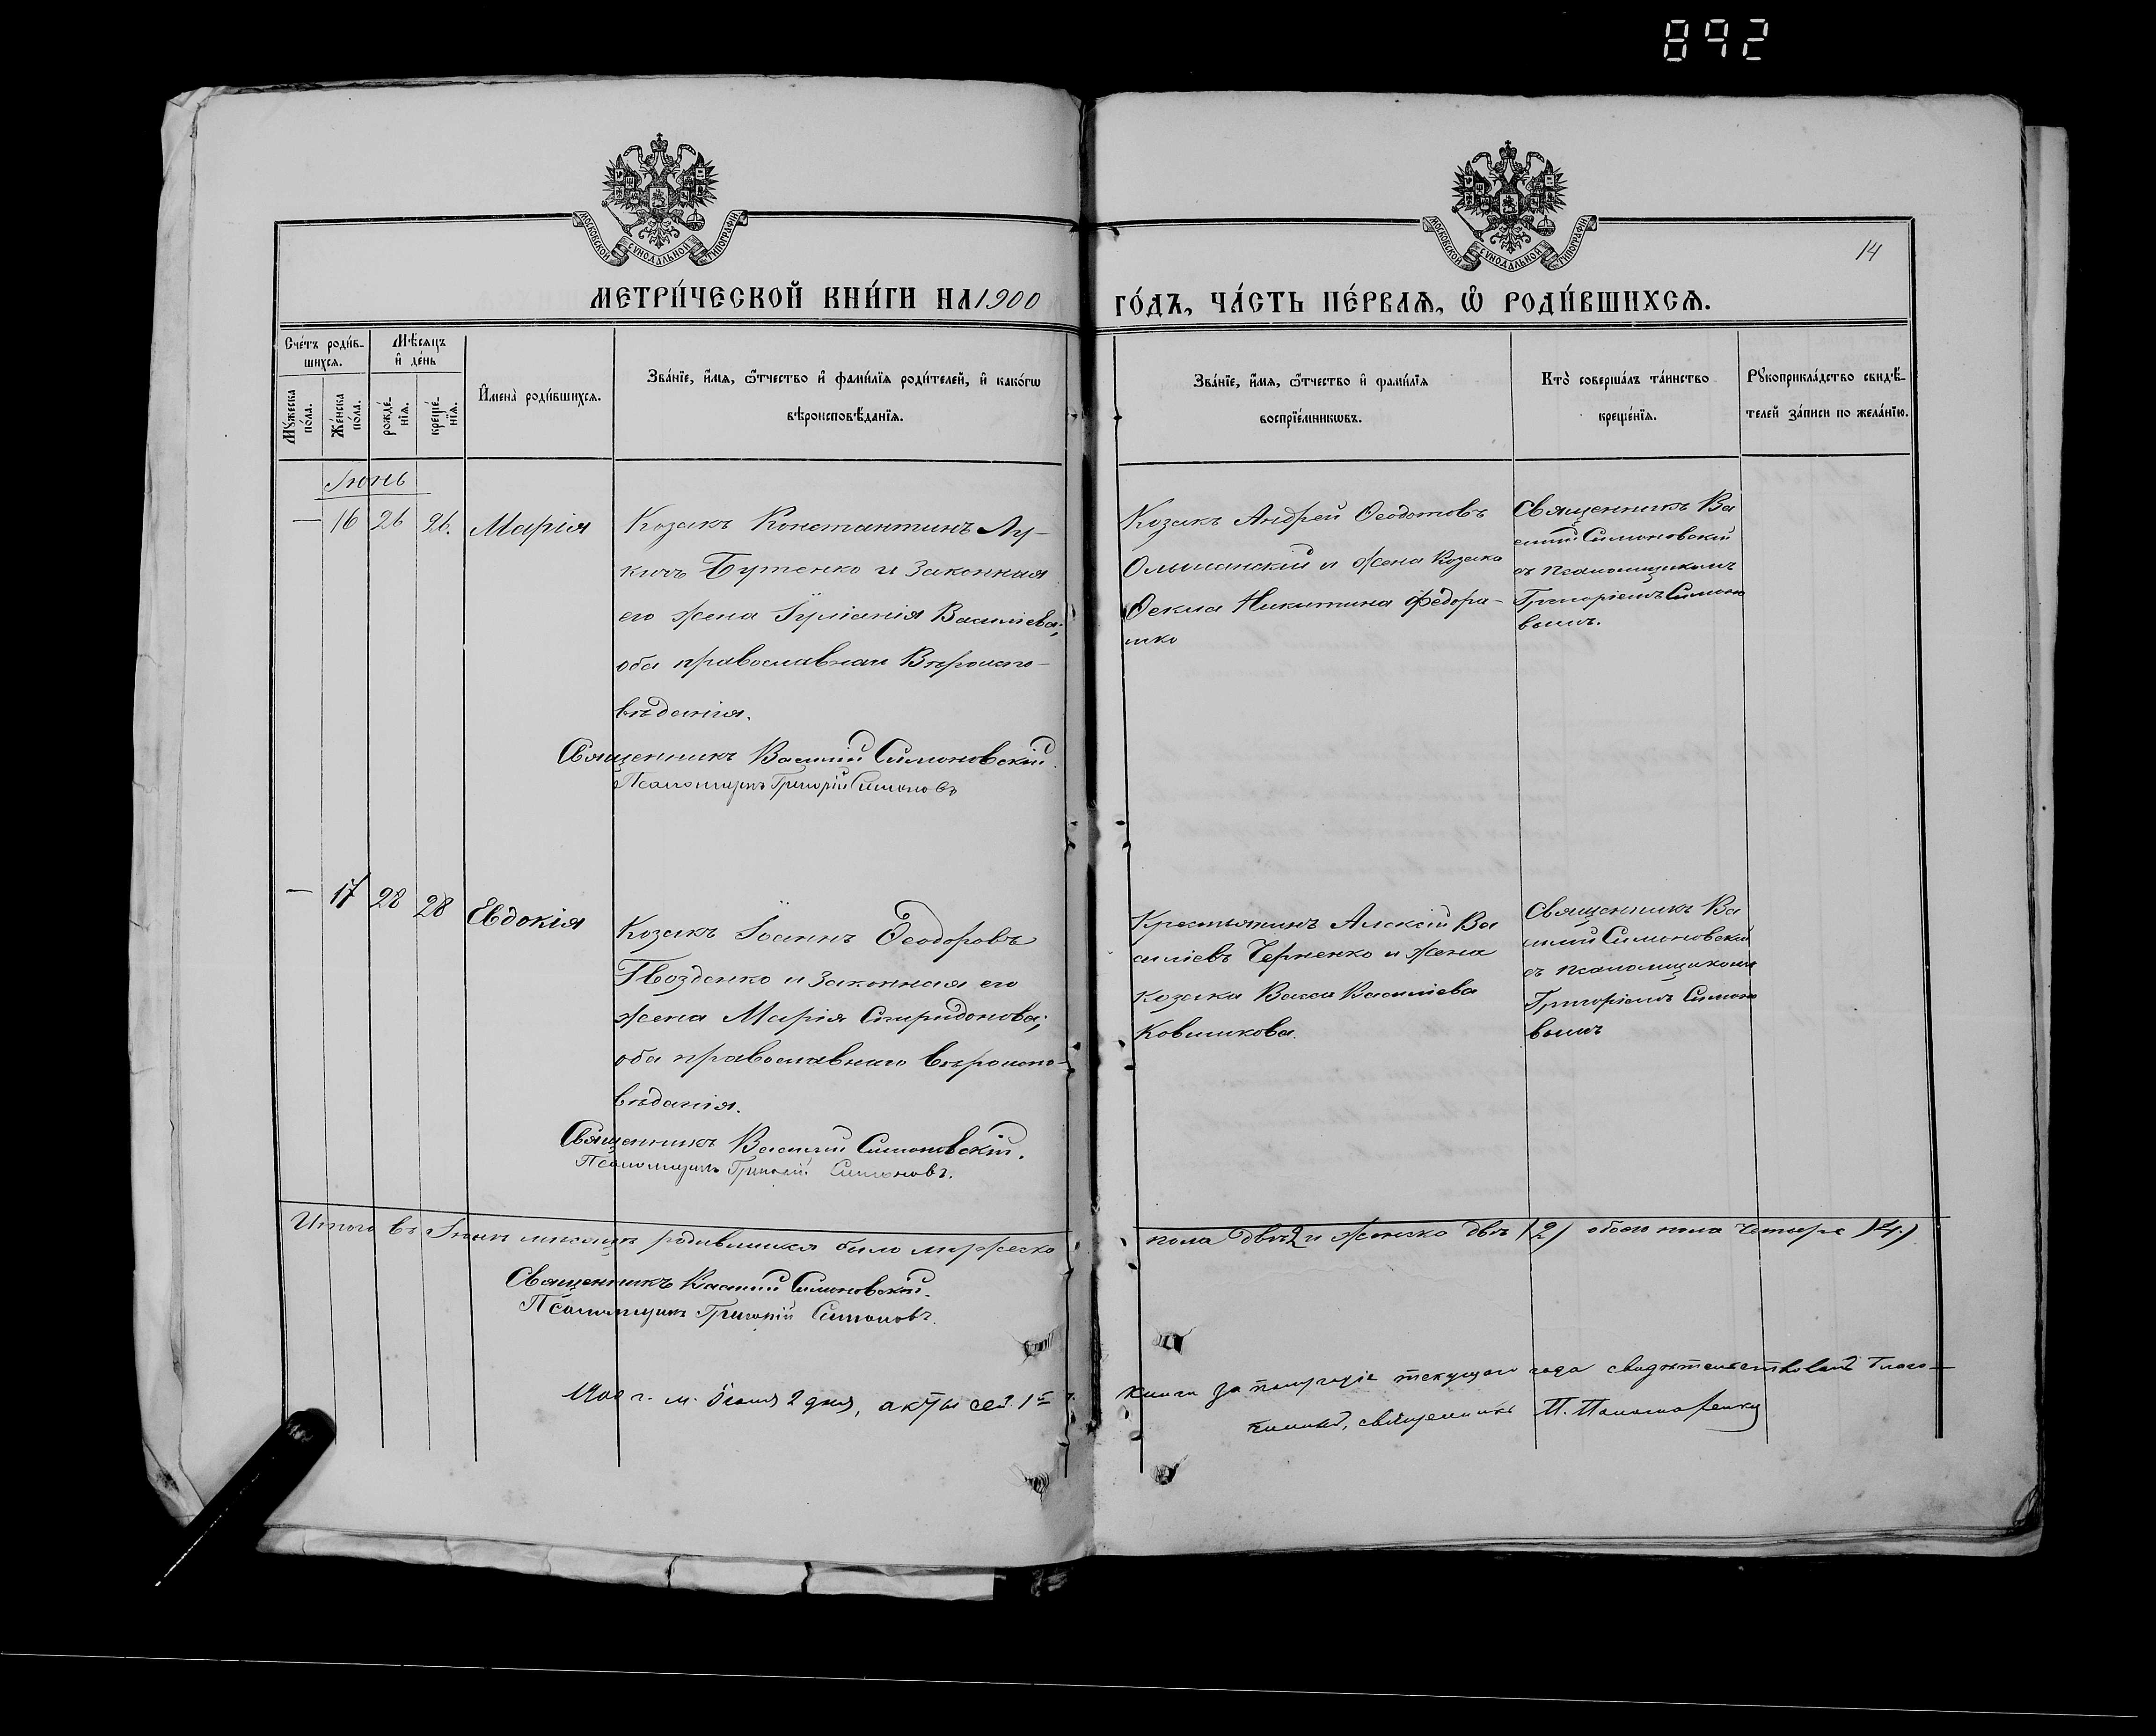 892
МОСКОВСКОЙ СѴНОДАЛЬНОЙ ТИПОГРАФІИ
МОСКОВСКОЙ СѴНОДАЛЬНОЙ ТИПОГРАФІИ
14
МЕТРИ́ЧЕСКОЙ КНИ́ГИ НА 1900 ГО́ДЪ, ЧА́СТЬ ПЕ́РВАѦ, Ѽ РОДИ́ВШИХСѦ.
Сче́тъ роди́в-
шихсѧ.
Мꙋ́жеска по́ла.
Же́нска по́ла.
Мѣ́сѧцъ
и҆ де́нь
рожде́-
нїѧ.
креще́-
нїѧ.
И҆мена̀ роди́вшихсѧ.
Зва́нїе, и҆́мѧ, ѻ҆́тчество и҆ фами́лїѧ роди́телей, и҆ како́гѡ
вѣроисповѣ́данїѧ.
Зва́нїе, и҆́мѧ, ѻ҆́тчество и҆ фами́лїѧ
воспрїе́мникѡвъ.
Кто̀ соверша́лъ та́инство
креще́нїѧ.
Рꙋкоприкла́дство свидѣ́-
телей за́писи по жела́нїю.
Іюнь
— 16 26 26. Марія
Козакъ Константинъ Лу-
кичъ Бутенко и законная
его жена Іуліанія Василіева;
оба православнаго Вѣроиспо-
вѣданія.
Священникъ Василій Симоновскій.
Псаломщикъ Григорій Симоновъ
Козакъ Андрей Ѳеодотовъ
Ольшанскій и жена козака
Ѳекла Никитина Федора-
шко
Священникъ Ва
силій Симоновскій
съ псаломщикомъ
Григоріемъ Симоно
вымъ.
— 17 28 28 Евдокія
Козакъ Іоаннъ Ѳеодоровъ
Гвозденко и законная его
жена Марія Спиридонова;
оба православнаго вѣроиспо-
вѣданія.
Священникъ Василій Симоновскій.
Псаломщикъ Григорій Симоновъ.
Крестьянинъ Алексій Ва
силіевъ Черненко и жена
козака Васса Василіева
Ковшикова.
Священникъ Ва
силій Симоновскій
съ псаломщикомъ
Григоріемъ Симоно
вымъ
Итого въ Іюнѣ мѣсяцѣ родившихся было мужеско пола двѣ 2 и женско двѣ (2) обоего пола четыре (4.)
Священникъ Василій Симоновскій.
Псаломщикъ Григорій Симоновъ.
1900 г. м. Іюля 2 дня, акты сей 1й ч. книги за полугодіе текущаго года свидѣтельствовалъ Благо-
чинный, священникъ П. Пономаренко